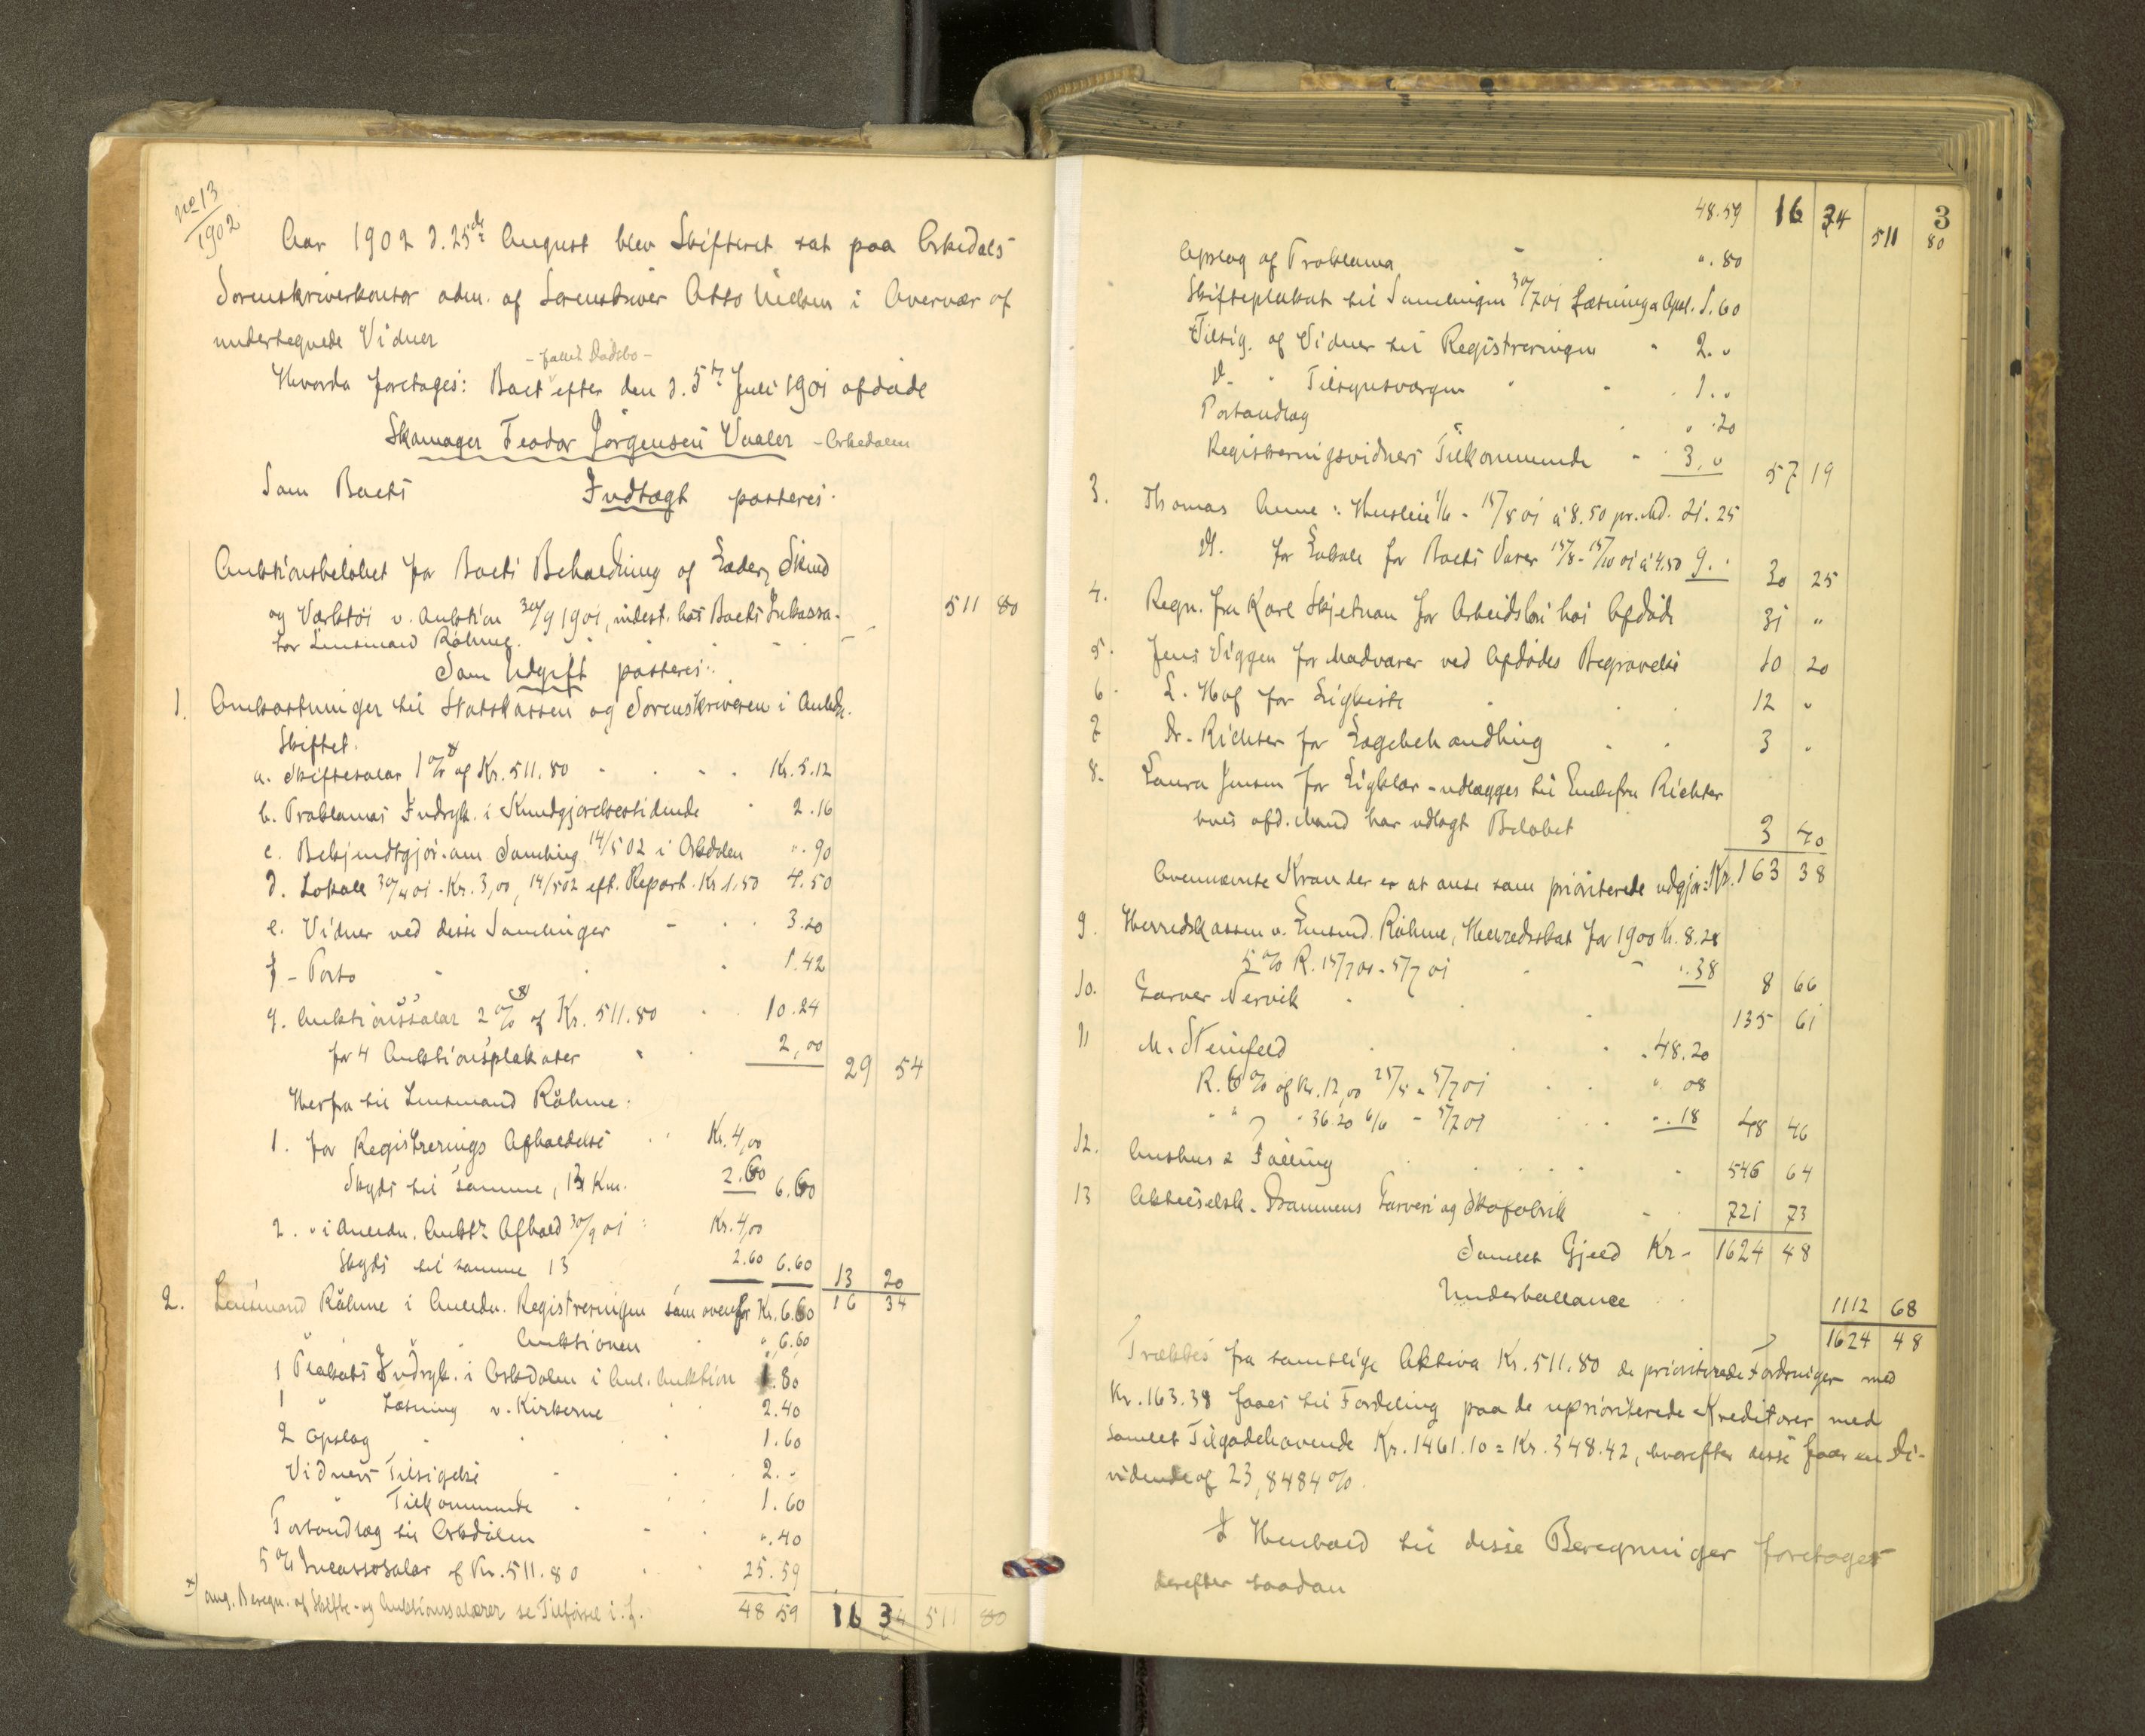 No 13
1902
Aar 1902 d. 25de August blev Skifteret sat paa Orkedals
Sorenskriverkontor adm. af Sorenskriver Otto Nielsen i Overvær af
undertegnede Vidner
- fallit Dødsbo -
Hvorda foretoges: Boet efter den d. 5te Juli 1901 afdøde
Skomager Teodor Jørgensen Vaaler - Orkedalen
Som Boets Indtægt posteres:
Auktionsbeløbet for Boets Beholdning af Læder, Skind
og Værktøi v. Auktion 30/9 1901, indest. hos Boets Inkassa- 511 80
tor Lensmand Råhme.
Som Udgift posteres:
1. Omkostninger til Statskassen og Sorenskriveren i Anledn.
Skiftet.
a. Skiftesalær 1% af Kr. 511.80 Kr. 5.12
b. Proklamas Indryk. i Kundgjørelsestidende 2.16
c. Bekjendtgjør. om Samling 14/5 02 i Orkdølen ". 90
d. Lokale 30/4 01 - Kr. 3,00, 14/5 02 eft. Repart. Kr 1.50 4.50
e. Vidner ved disse Samlinger 3.20
f - Porto 1.42
g. Auktionssalær 2% af Kr. 511.80 10.24
for 4 Auktionsplakater 2,00 29 54
Herfra til Lensmand Råhme.
1. for Registrerings Afholdelse Kr. 4,00
Skyds til samme, 13 Km. 2.60 6.60
2. " i Anledn. Aukt. Afhold 30/9 01 Kr. 4,00
Skyds til samme 13 2.60 6.60 13 20
2. Lensmand Råhme i Anledn. Registreringen som ovenfor Kr. 6.60 16 34
" " Auktionen " 6.60
1 Plakats Indryk. i Orkdølen i Anl. Auktion 1.80
1 " Læsning v. Kirkerne 2.40
2 Opslag 1.60
Vidners Tilsigelse 2. "
Tilkommende 1.60
Portoudlæg til Orkdølen ". 40
5% Incassosalær af Kr. 511.80 25.59
x) ang. Beregn. af Skifte- og Auktionssalærer se Tilførsel i. f. 48 59 16 34 511 80
3
48.59 16 34 511 80
Opslag af Proklama ". 80
Skifteplakat til Samlingen 30/7 01 Læsning & Opsl. 1.60
Tilsig. af Vidner til Registreringen 2. "
D. " Tilsynsværgen 1. "
Portoudlæg " .20
Registreringsvidners Tilkommende 3, " 57 19
3. Thomas Aune: Husleie 1/6 - 15/8 01 à 8.50 pr. Md. 21.25
D. for Lokale for Boets Varer 15/8 - 15/10 01 à 4.50 9. " 30 25
4. Regn. fra Karl Skjetnan for Arbeidsløn hos Afdøde 31 "
5. Jens Viggen for Madvarer ved Afdødes Begravelse 10 20
6. L. Hof for Ligkiste 12 "
7 Dr. Richter for Lægebehandling 3 "
8. Laura Jensen for Ligklær - udlægges til Enkefru Richter
hvis afd. Mand har udlagt Beløbet 3 40
Ovennævnte Krav der er at anse som prioriterede udgjør: Kr. 163 38
9. Herredskassen v. Lensmd. Råhme, Herredsskat for 1900 Kr. 8.28
5% R. 15/7 00 - 5/7 01 ". 38 8 66
10. Garver Nervik 135 61
11 M. Steinfeld 48.20
R. 6% af Kr. 12,00 25/5 - 5/7 01 " 08
" " " 36.20 6/6 - 5/7 01 ". 18 48 46
12. Aushus & Fæling 546 64
13 Aktieselsk. Drammens Garveri og Skofabrik 721 73
Samlet Gjeld Kr. 1624 48
Underballance 1112 68
1624 48
Trækkes fra samtlige Aktiva Kr. 511.80 de prioriterede Fordringer med
Kr. 163.38 faaes til Fordeling paa de uprioriterede Kreditorer med
samlet Tilgodehavende Kr. 1461.10 = Kr. 348.42, hvorefter disse faar en Di-
vidende af 23,8484%.
I Henhold til disse Beregninger foretoges
derefter saadan